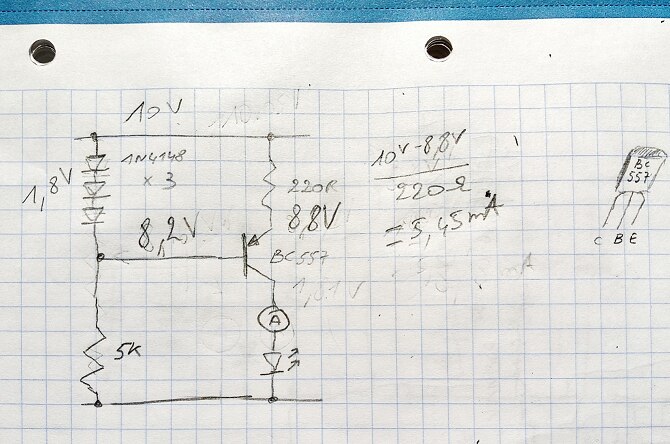 10V
1N4148
x 3
1,8V
220R
8,8V
8,2V
BC557
A
5K
10V-8,8V
220Ω
=5,45mA
BC
557
C B E